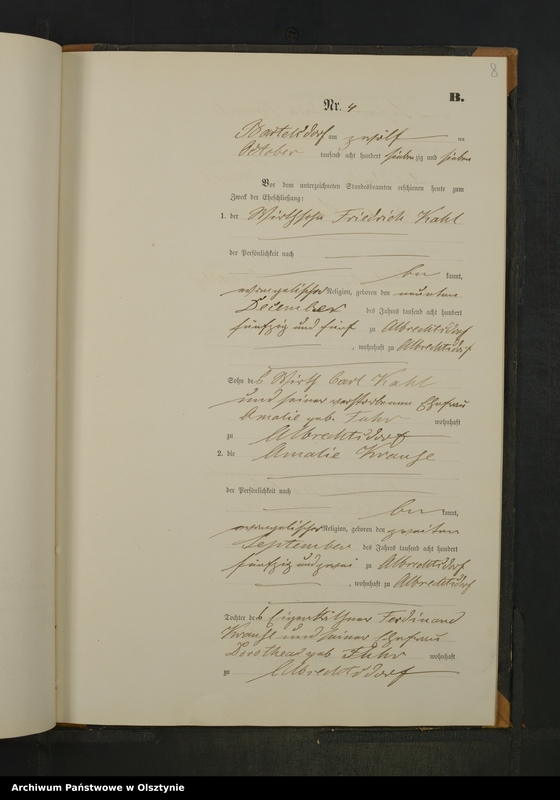 8
B.
Nr. 4
Bartelsdorf am zwölf ten
October tausend acht hundert siebenzig und sieben
Vor dem unterzeichneten Standesbeamten erschienen heute zum
Zweck der Eheschließung:
1. der Wirthssohn Friedrich Kahl
der Persönlichkeit nach
be kannt,
evangelischer Religion, geboren den neunten
December des Jahres tausend acht hundert
fünfzig und fünf zu Albrechtsdorf
, wohnhaft zu Albrechtsdorf
Sohn des Wirth Carl Kahl
und seiner verstorbenen Ehefrau
Amalie geb. Fuhr wohnhaft
zu Albrechtsdorf
2. die Amalie Krause
der Persönlichkeit nach
be kannt,
evangelischer Religion, geboren den zweiten
September des Jahres tausend acht hundert
fünfzig und zwei zu Albrechtsdorf
, wohnhaft zu Albrechtsdorf
Tochter des Eigenkäthner Ferdinand
Krause und seiner Ehefrau
Dorothea geb Fuhr wohnhaft
zu Albrechtsdorf
Archiwum Państwowe w Olsztynie